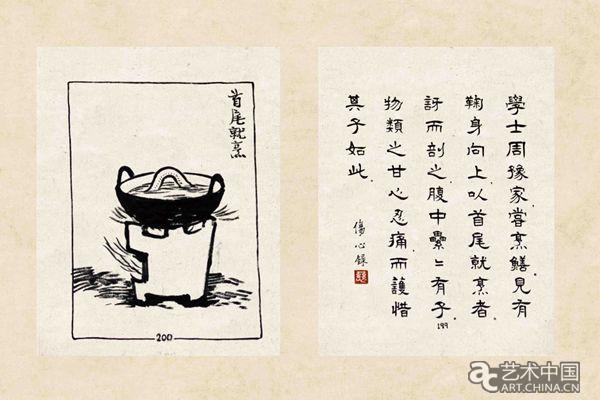 首尾就烹
200
學士周豫家嘗烹鱔見有
鞠身向上以首尾就烹者.
訝而剖之.腹中纍〻有子.
物類之甘心忍痛而護惜
其子如此.
傷心錄
199
ac 艺术中国
ART.CHINA.CN